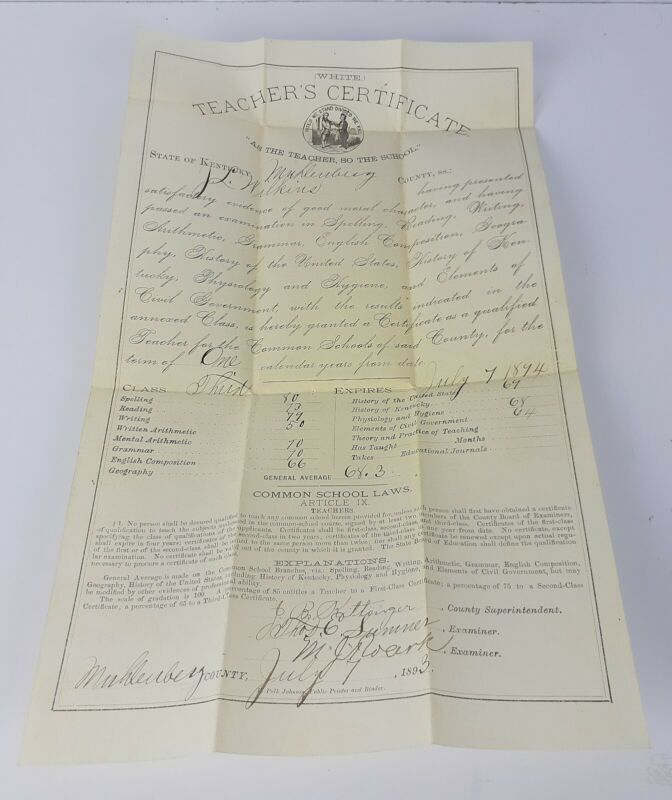 (WHITE.)
TEACHER'S CERTIFICATE
UNITED WE STAND DIVIDED WE FALL
"AS THE TEACHER, SO THE SCHOOL."
STATE OF KENTUCKY, Muhlenberg COUNTY, SS.:
Wilkins having presented
satisfactory evidence of good moral character and having
passed an examination in Spelling, Reading, Writing,
Arithmetic, Grammar, English Composition, Geogra-
phy, History of the United States, History of Ken-
tucky, Physiology and Hygiene, and Elements of
Civil Government, with the results indicated in the
annexed Class, is hereby granted a Certificate as a qualified
Teacher for the Common Schools of said County, for the
term of One calendar years from date.
CLASS Third EXPIRES July 7 1894
Spelling 80
Reading 73
Writing 79
Written Arithmetic 50
Mental Arithmetic
Grammar 70
English Composition 70
Geography 66
History of the United States 69
History of Kentucky
Physiology and Hygiene 68
Elements of Civil Government 64
Theory and Practice of Teaching
Has Taught Months
Takes Educational Journals
GENERAL AVERAGE 68.3
COMMON SCHOOL LAWS.
ARTICLE IX.
TEACHERS.
§ 1. No person shall be deemed qualified to teach any common school herein provided for, unless such person shall first have obtained a certificate
of qualification to teach the subjects embraced in the common-school course, signed by at least two members of the County Board of Examiners,
specifying the class of qualifications of the applicants. Certificates shall be first-class, second-class, and third-class. Certificates of the first-class
shall expire in four years; certificates of the second-class in two years; certificates of the third-class in one year from date. No certificate, except
of the first or of the second-class, shall be issued to the same person more than twice; nor shall any certificate be renewed except upon actual regu-
lar examination. No certificate shall be valid out of the county in which it is granted. The State Board of Education shall define the qualification
necessary to procure a certificate of each class.
EXPLANATIONS.
General Average is made on the Common School Branches, viz: Spelling, Reading, Writing, Arithmetic, Grammar, English Composition,
Geography, History of the United States, including History of Kentucky, Physiology and Hygiene, and Elements of Civil Government, but may
be modified by other evidences of professional ability.
The scale of gradation is 100. A percentage of 85 entitles a Teacher to a First-Class Certificate; a percentage of 75 to a Second-Class
Certificate; a percentage of 65 to a Third-Class Certificate.
, County Superintendent.
Sumner , Examiner.
, Examiner.
Muhlenberg COUNTY, July 7 , 1893.
Polk Johnson, Public Printer and Binder.